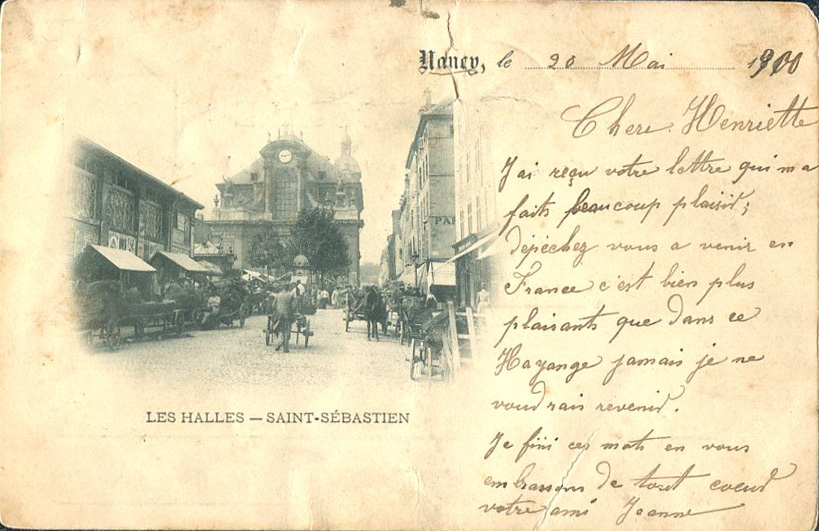 Nancy, le 20 Mai 1900
Chere Henriette
J'ai reçu votre lettre qui m a
faits beaucoup plaisir;
dépéchez vous a venir en
France c'est bien plus
plaisants que dans ce
Hayange jamais je ne
voudrais revenir.
Je fini ces mots en vous
embrassons de tout coeur
votre ami Jeanne
PA
LES HALLES — SAINT-SÉBASTIEN